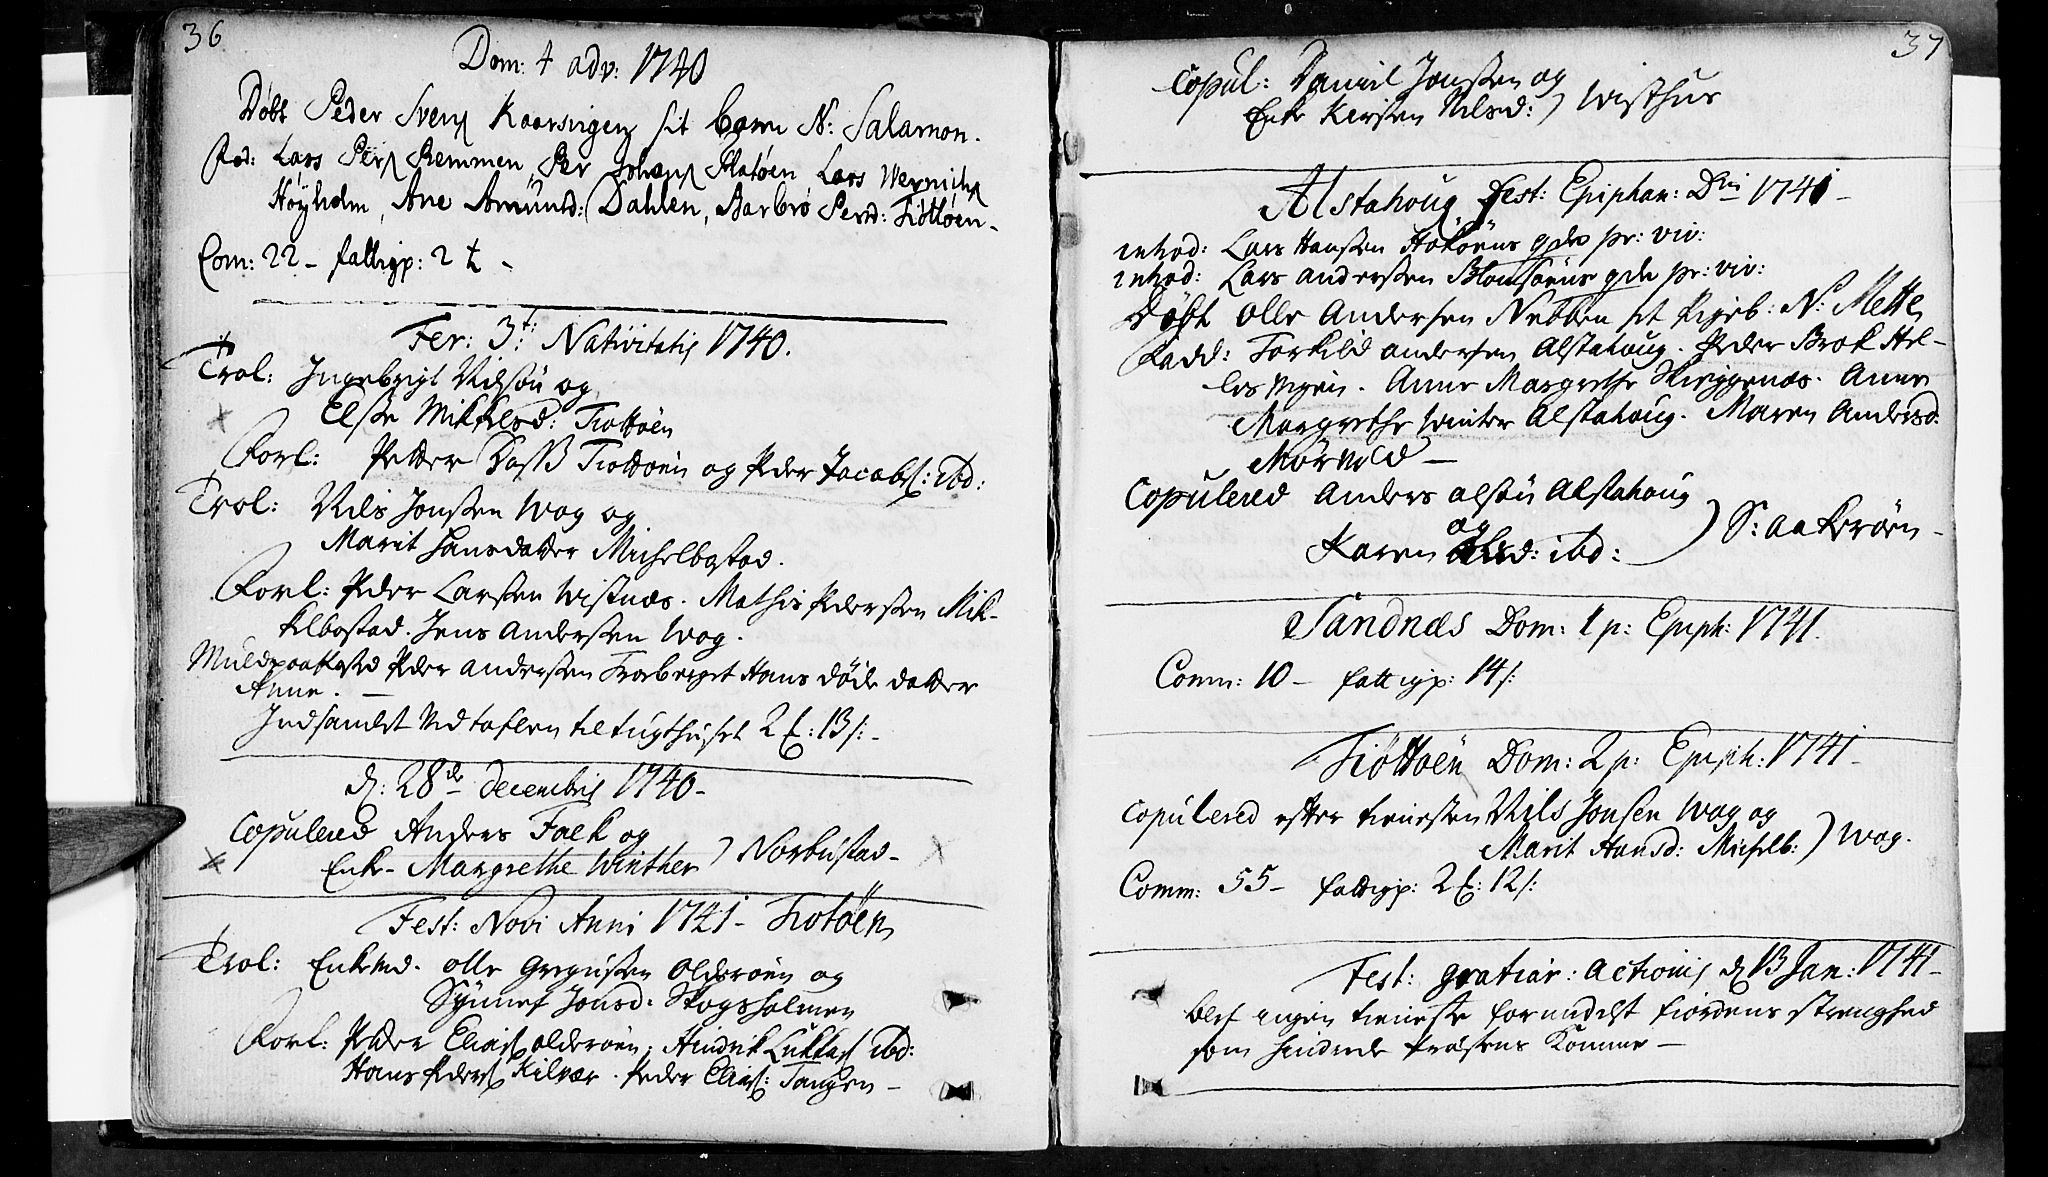 36
Dom: 4 adv: 1740
Døbt Peder Svens Kaarsvigen sit barn N: Salamon.
Fad: Lars Pers Remmen, Per Johans Flatøen Lars Wernichs
Høyholm, Ane Amunds: Dahlen, Barbro Persd: Tiøttøen -
Com: 22 - fattigp: 2
Fer: 3t: Nativitatis 1740.
Trol: Ingebrigt Nilsøn og
Elsse Mikkelsd: Tiøttøen
Forl: Petter Dass Tiøttøen og Peder Jacobs: ibd:
Trol: Nils Jonssen Wog og
Marit Hansdatter Michelbostad.
Forl: Peder Larssen Wistnæs. Mathis Pederssen Mik-
kelbostad. Jens Anderssen Wog.
Muldpaakast Peder Anderssen Forberget Hans døde datter
Anne. -
Indsamlet ved taflen til tugthuset 2 : 13 s: -
d: 28de Decembris 1740 -
Copulered Anders Falk og
Enke - Margrethe Winther ) Norbustad -
Fest: Novi Anni 1741 - Tiøtøen
Trol: Enkemd. Olle Gregussen Olderøen og
Synnef Jonsd: Skogsholmen
Forl: Peder Elias Olderøen, Hindrik Lukkas ibd:
Hans Peders Kilvær. Peder Elias: Tangen -
37
Copul: Daniel Jonssen og
Enke Kirsten Nilsd: ) Wisthus
Alstahoug Fest: Epiphan: Dni 1741 -
introd: Lars Hanssen Hokøens qde pr: viv:
introd: Lars Anderssen Blomsøens qde pr: viv:
Døbt Olle Andersen Nebben sit Pigeb: N: Mette
Fadd: Torkild Andersen Alstahoug. Peder Brok Hel-
Anne Margrethe Anne
Margrethe Winter Alstahoug. Maren Andersd:
Copulered Anders Alstahoug
og
Karen ibd: ) S: Aakerøen -
Sandnæs Dom: 1 p: Epiph: 1741.
Comm: 10 - fattigp: 14 s:
Tiøttøen Dom: 2 p: Epiph: 1741 -
Copulered efter tienesten Nils Jonsen Wog og
Marit Hansd: Michelb: ) Wog.
Comm: 55 - fattigp: 2 : 12 s:
Fest: gratiar: actionis d 13 Jan: 1741 -
blef ingen tieneste formedelst fiordens strenghed
som hindrede Præstens Komme -